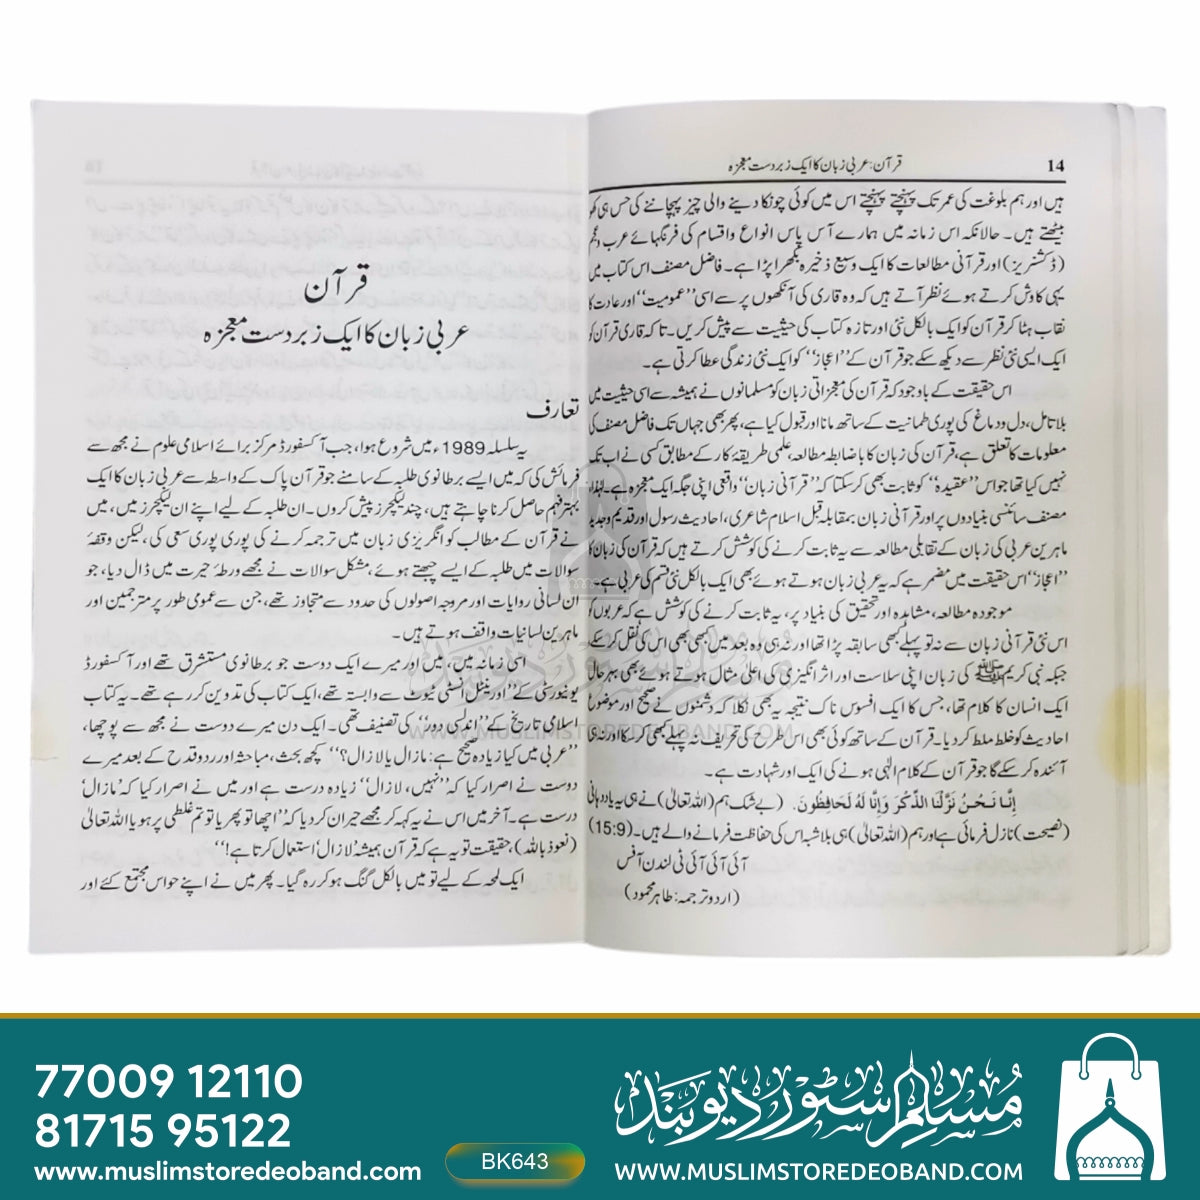 14
قرآن: عربی زبان کا ایک زبردست معجزہ
ہیں اور ہم بلوغت کی عمر تک پہنچتے پہنچتے اس میں کوئی چونکا دینے والی چیز پہچاننے کی حس ہی کھو
بیٹھتے ہیں۔ حالانکہ اس زمانہ میں ہمارے آس پاس انواع واقسام کی فرہنگہائے عرب وعجم
(ڈکشنریز) اور قرآنی مطالعات کا ایک وسیع ذخیرہ بکھرا پڑا ہے۔ فاضل مصنف اس کتاب میں
یہی کاوش کرتے ہوئے نظر آتے ہیں کہ وہ قاری کی آنکھوں پر سے اسی ’’عمومیت‘‘ اور عادت کا
نقاب ہٹا کر قرآن کو ایک بالکل نئی اور تازہ کتاب کی حیثیت سے پیش کریں۔ تاکہ قاری قرآن کو
ایک ایسی نئی نظر سے دیکھ سکے جو قرآن کے ’’اعجاز‘‘ کو ایک نئی زندگی عطا کرتی ہے۔
اس حقیقت کے باوجود کہ قرآن کی معجزاتی زبان کو مسلمانوں نے ہمیشہ سے اسی حیثیت میں
بلا تامل، دل ودماغ کی پوری طمانیت کے ساتھ مانا اور قبول کیا ہے، پھر بھی جہاں تک فاضل مصنف کی
معلومات کا تعلق ہے، قرآن کی زبان کا باضابطہ مطالعہ، علمی طریقۂ کار کے مطابق کسی نے اب تک
نہیں کیا تھا جو اس ’’عقیدہ‘‘ کو ثابت بھی کر سکتا کہ ’’قرآنی زبان‘‘ واقعی اپنی جگہ ایک معجزہ ہے۔ لہٰذا
مصنف سائنسی بنیادوں پر اور قرآنی زبان بمقابلہ قبل اسلام شاعری، احادیث رسول اور قدیم وجدید
ماہرین عربی کی زبان کے تقابلی مطالعہ سے یہ ثابت کرنے کی کوشش کرتے ہیں کہ قرآن کی زبان کا
’’اعجاز‘‘ اس حقیقت میں مضمر ہے کہ یہ عربی زبان ہوتے ہوئے بھی ایک بالکل نئی قسم کی عربی ہے۔
موجودہ مطالعہ، مشاہدہ اور تحقیق کی بنیاد پر، یہ ثابت کرنے کی کوشش ہے کہ عربوں کو
اس نئی قرآنی زبان سے نہ تو پہلے بھی سابقہ پڑا تھا اور نہ ہی وہ بعد میں بھی بھی اس کی نقل کر سکے
جبکہ نبی کریم ﷺ کی زبان اپنی سلاست اور اثر انگیزی کی اعلیٰ مثال ہوتے ہوئے بھی بہرحال
ایک انسان کا کلام تھا، جس کا ایک افسوس ناک نتیجہ یہ بھی نکلا کہ دشمنوں نے صحیح اور موضوع
احادیث کو خلط ملط کر دیا۔ قرآن کے ساتھ کوئی بھی اس طرح کی تحریف نہ پہلے بھی کر سکا اور نہ ہی
آئندہ کر سکے گا جو قرآن کے کلام الٰہی ہونے کی ایک اور شہادت ہے۔
إِنَّا نَحْنُ نَزَّلْنَا الذِّكْرَ وَإِنَّا لَهُ لَحَافِظُونَ. (بے شک ہم (اللہ تعالیٰ) نے ہی یہ یاد دہانی
(نصیحت) نازل فرمائی ہے اور ہم (اللہ تعالیٰ) ہی بلاشبہ اس کی حفاظت فرمانے والے ہیں۔ (15:9)
آئی آئی آئی ٹی لندن آفس
(اردو ترجمہ: طاہر محمود)
قرآن
عربی زبان کا ایک زبردست معجزہ
تعارف
یہ سلسلہ 1989ء میں شروع ہوا، جب آکسفورڈ مرکز برائے اسلامی علوم نے مجھ سے
فرمائش کی کہ میں ایسے برطانوی طلبہ کے سامنے جو قرآن پاک کے واسطہ سے عربی زبان کا ایک
بہتر فہم حاصل کرنا چاہتے ہیں، چند لیکچرز پیش کروں۔ ان طلبہ کے لیے اپنے ان لیکچرز میں، میں
نے قرآن کے مطالب کو انگریزی زبان میں ترجمہ کرنے کی پوری پوری سعی کی، لیکن وقفۂ
سوالات میں طلبہ کے ایسے چبھتے ہوئے مشکل سوالات نے مجھے ورطۂ حیرت میں ڈال دیا، جو
ان لسانی روایات اور مروجہ اصولوں کی حدود سے متجاوز تھے، جن سے عمومی طور پر مترجمین اور
ماہرین لسانیات واقف ہوتے ہیں۔
اسی زمانہ میں، میں اور میرے ایک دوست جو برطانوی مستشرق تھے اور آکسفورڈ
یونیورسٹی کے ’’اورینٹل انسٹی ٹیوٹ سے وابستہ تھے، ایک کتاب کی تدوین کر رہے تھے۔ یہ کتاب
اسلامی تاریخ کے ’’اندلسی دور‘‘ کی تصنیف تھی۔ ایک دن میرے دوست نے مجھ سے پوچھا،
’’عربی میں کیا زیادہ صحیح ہے: مازال یا لازال؟‘‘ کچھ بحث، مباحثہ اور ردو قدح کے بعد میرے
دوست نے اصرار کیا کہ ’’نہیں، لازال‘‘ زیادہ درست ہے اور میں نے اصرار کیا کہ ’مازال‘
درست ہے۔ آخر میں اس نے یہ کہہ کر مجھے حیران کر دیا کہ ’’اچھا تو پھر یا تو تم غلطی پر ہو یا اللہ تعالیٰ
(نعوذ باللہ) حقیقت تو یہ ہے کہ قرآن ہمیشہ ’لازال‘ استعمال کرتا ہے!‘‘
ایک لمحہ کے لیے تو میں بالکل گنگ ہو کر رہ گیا۔ پھر میں نے اپنے حواس مجتمع کئے اور
مسلم سٹور دیوبند
WWW.MUSLIMSTOREDEOBAND.COM
77009 12110
81715 95122
www.muslimstoredeoband.com
BK643
مسلم سٹور دیوبند
WWW.MUSLIMSTOREDEOBAND.COM